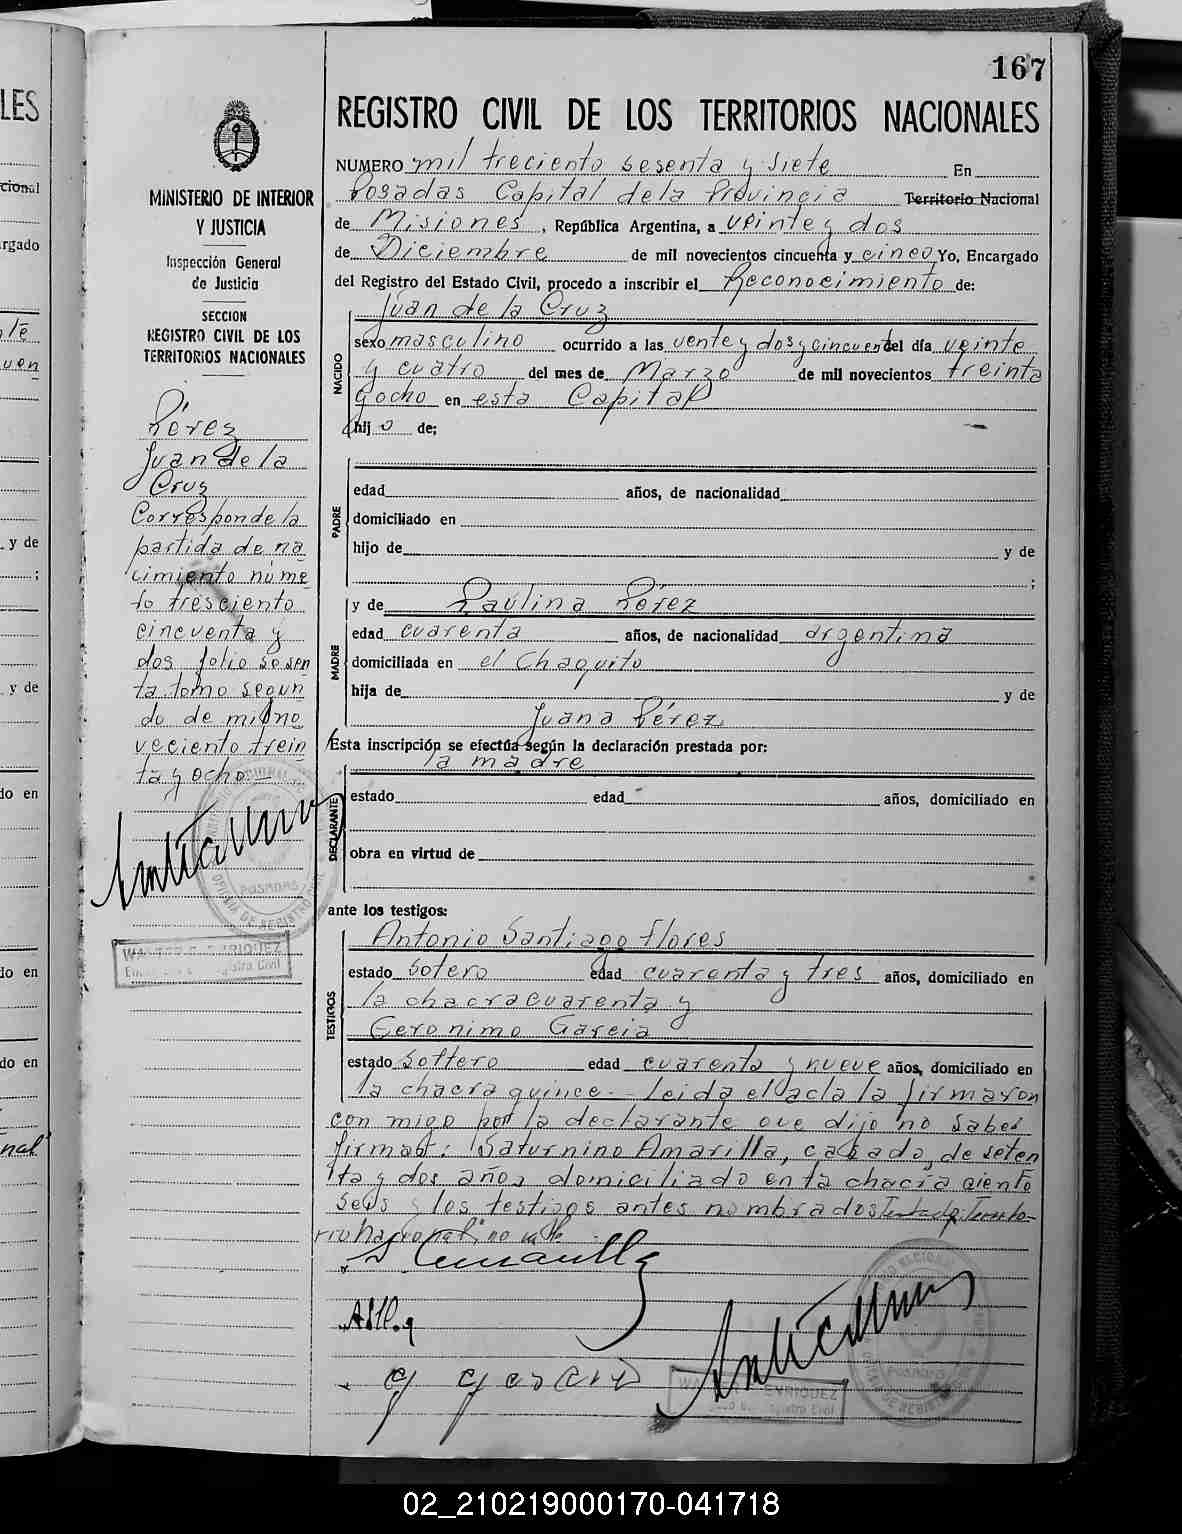 167
LES
cional
rgado
MINISTERIO DE INTERIOR
Y JUSTICIA
Inspección General
de Justicia
SECCION
REGISTRO CIVIL DE LOS
TERRITORIOS NACIONALES
Pérez
Juan de la
Cruz
Corresponde la
partida de na
cimiento núme
ro tresciento
cincuenta y
dos folio sesen
ta tomo segun
do de mil no
veciento trein
ta y ocho
POSADAS
OFICINA DE REGISTRO CIVIL
REGISTRO CIVIL DE LOS TERRITORIOS NACIONALES
NUMERO mil treciento sesenta y siete En
Posadas Capital de la Provincia Territorio Nacional
de Misiones, República Argentina, a veinte y dos
de Diciembre de mil novecientos cincuenta y cinco Yo, Encargado
del Registro del Estado Civil, procedo a inscribir el Reconocimiento de:
Juan de la Cruz
NACIDO
sexo masculino ocurrido a las vente y dos y cincuenta del día veinte
y cuatro del mes de Marzo de mil novecientos treinta
y ocho en esta Capital
hijo de;
PADRE
edad años, de nacionalidad
domiciliado en
hijo de y de
;
MADRE
y de Paulina Pérez
edad cuarenta años, de nacionalidad argentina
domiciliada en el Chaquito
hija de y de
Juana Pérez
Esta inscripción se efectúa según la declaración prestada por:
la madre
DECLARANTE
estado edad años, domiciliado en
obra en virtud de
ante los testigos:
TESTIGOS
Antonio Santiago Flores
estado sotero edad cuarenta y tres años, domiciliado en
la chacra cuarenta y
Geronimo Garcia
estado solttero edad cuarenta y nueve años, domiciliado en
la chacra quince.- Leida el acta la firmaron
con migo por la declarante que dijo no saber
firmar: Saturnino Amarilla, casado, de seten
ta y dos años domiciliado en la chacra ciento
seis y los testigos antes nombrados Testado: Territo-
rio Nacional" no vale
S Amarilla
G garcia
02_210219000170-041718